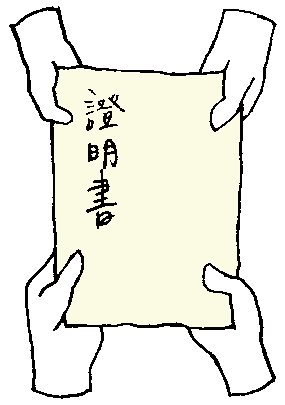 證明書